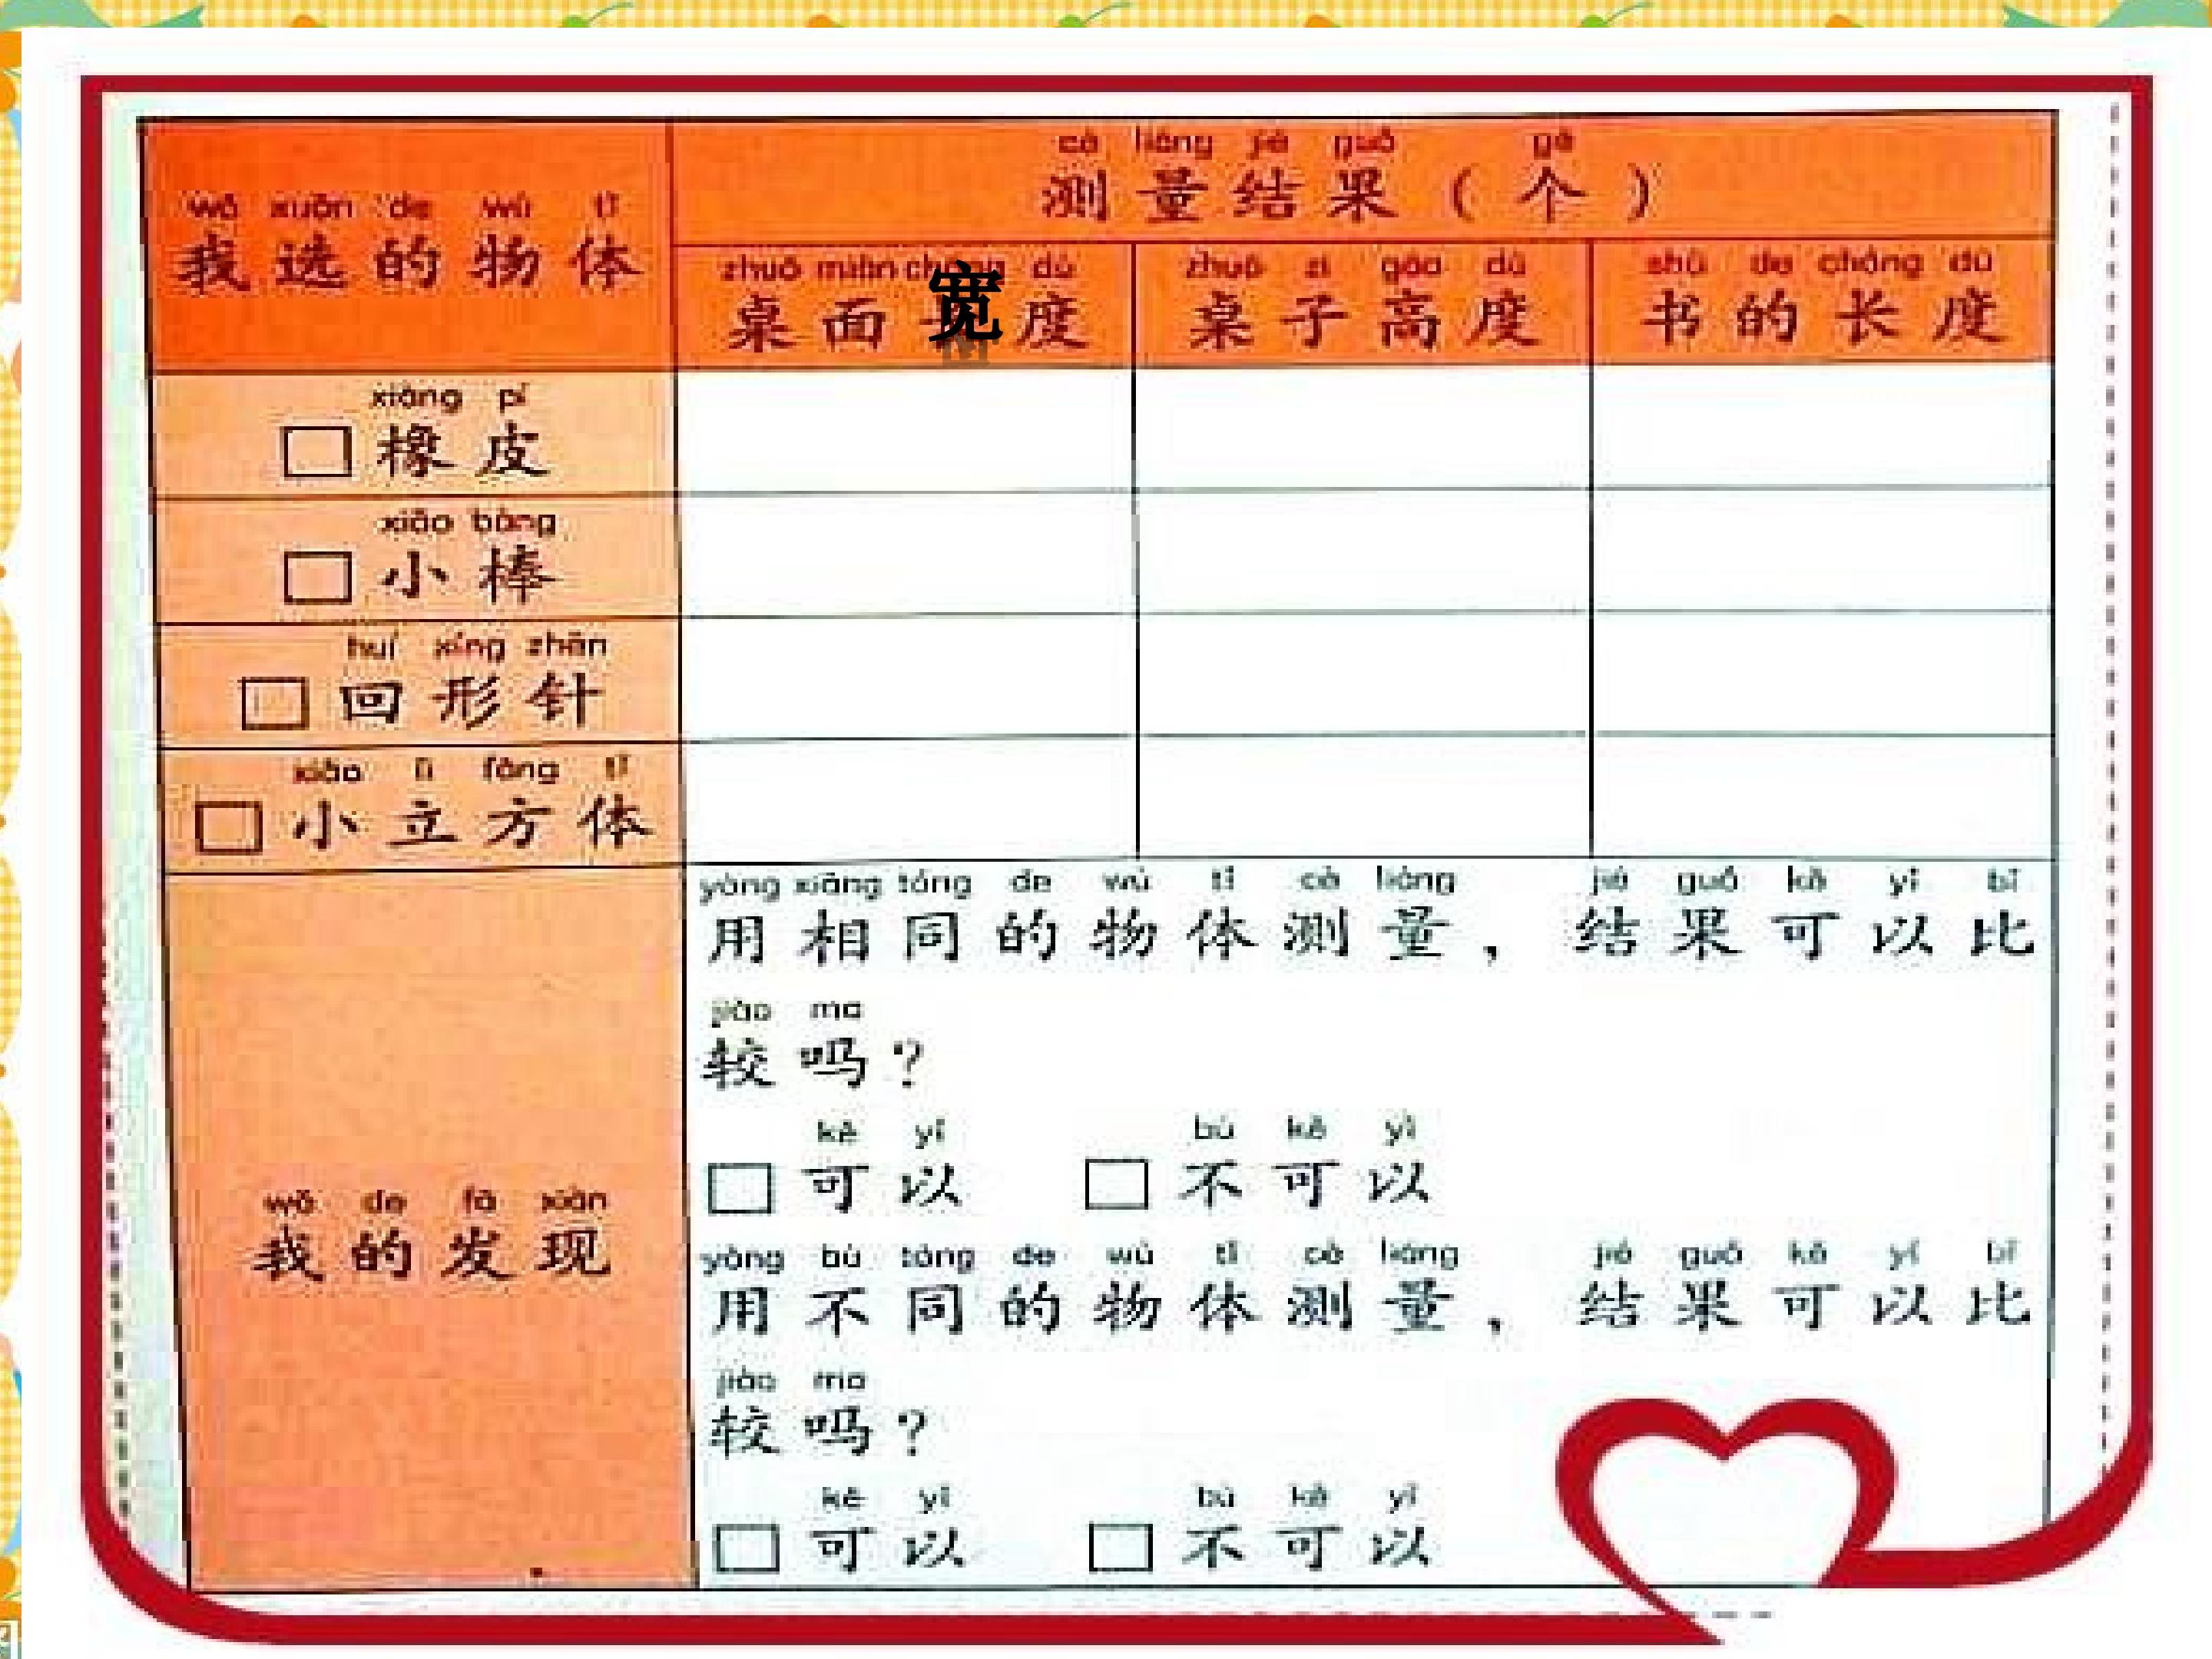 cè liáng jié guǒ gè
测量结果（个）
wǒ xuǎn de wù tǐ
我选的物体
zhuō miàn dù
桌面宽度
zhuō zi gāo dù
桌子高度
shū de cháng dù
书的长度
xiàng pí
□橡皮
xiǎo bàng
□小棒
huí xíng zhēn
□回形针
xiǎo lì fāng tǐ
□小立方体
wǒ de fā xiàn
我的发现
yòng xiāng tóng de wù tǐ cè liáng jié guǒ kě yǐ bǐ
用相同的物体测量，结果可以比
jiào ma
较吗？
kě yǐ bù kě yǐ
□可以 □不可以
yòng bù tóng de wù tǐ cè liáng jié guǒ kě yǐ bǐ
用不同的物体测量，结果可以比
jiào ma
较吗？
kě yǐ bù kě yǐ
□可以 □不可以